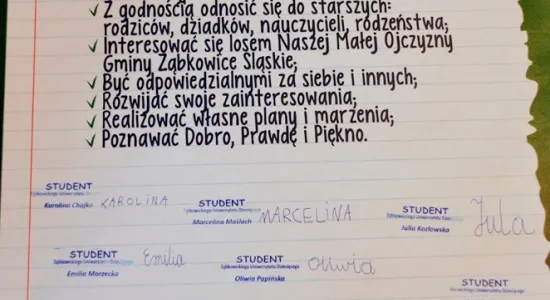 ✓ Z godnością odnosić się do starszych:
rodziców, dziadków, nauczycieli, rodzeństwa;
✓ Interesować się losem Naszej Małej Ojczyzny
Gminy Ząbkowice Śląskie;
✓ Być odpowiedzialnymi za siebie i innych;
✓ Rozwijać swoje zainteresowania;
✓ Realizować własne plany i marzenia;
✓ Poznawać Dobro, Prawdę i Piękno.
STUDENT
Karolina Chajka KAROLINA
STUDENT
Ząbkowickiego Uniwersytetu Dziecięcego
Marcelina Maślach MARCELINA
STUDENT
Julia Kozłowska Jula
STUDENT
Ząbkowickiego Uniwersytetu Dziecięcego
Emilia Marzecka Emilia
STUDENT
Ząbkowickiego Uniwersytetu Dziecięcego
Oliwia Papińska Oliwia
STUDENT